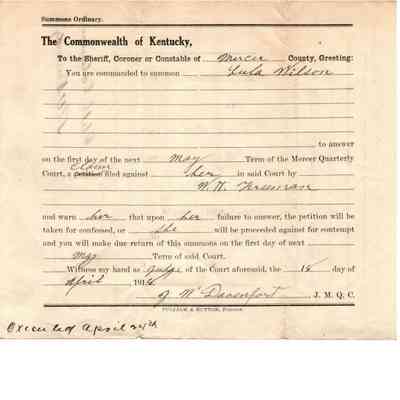 Summons Ordinary.
The Commonwealth of Kentucky,
To the Sheriff, Coroner or Constable of Mercer County, Greeting:
You are commanded to summon Lula Wilson
to answer
on the first day of the next May Term of the Mercer Quarterly
claim
Court, a petition filed against her in said Court by
Freeman
and warn her that upon her failure to answer, the petition will be
taken for confessed, or she will be proceeded against for contempt
and you will make due return of this summons on the first day of next
May Term of said Court.
Witness my hand as Judge of the Court aforesaid, the day of
April 191
Davenport J. M. Q. C.
Executed April 24th